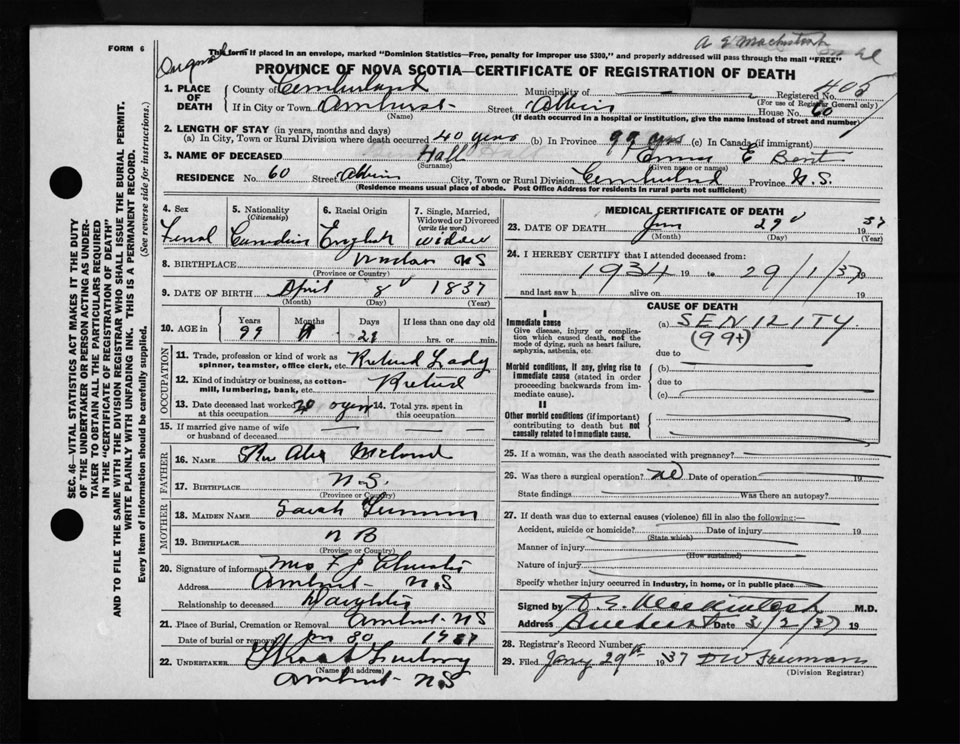 A E MacKintosh
FORM 6
Original
This form if placed in an envelope, marked "Dominion Statistics—Free, penalty for improper use $300," and properly addressed will pass through the mail "FREE"
PROVINCE OF NOVA SCOTIA—CERTIFICATE OF REGISTRATION OF DEATH
1. PLACE OF DEATH
County of Cumberland Municipality of — Registered No. 405
(For use of Registrar General only)
If in City or Town Amherst Street Albion House No. 60
(Name) (If death occurred in a hospital or institution, give the name instead of street and number)
2. LENGTH OF STAY (in years, months and days)
(a) In City, Town or Rural Division where death occurred 40 years (b) In Province 99 yrs (c) In Canada (if immigrant)
3. NAME OF DECEASED Hall Emma E Bent
(Surname) (Given name or names)
RESIDENCE No. 60 Street Albion City, Town or Rural Division Cumberland Province N.S.
(Residence means usual place of abode. Post Office Address for residents in rural parts not sufficient)
SEC. 46—VITAL STATISTICS ACT MAKES IT THE DUTY
OF THE UNDERTAKER OR PERSON ACTING AS UNDER-
TAKER TO OBTAIN ALL THE PARTICULARS REQUIRED
IN THE "CERTIFICATE OF REGISTRATION OF DEATH"
AND TO FILE THE SAME WITH THE DIVISION REGISTRAR WHO SHALL ISSUE THE BURIAL PERMIT.
WRITE PLAINLY WITH UNFADING INK. THIS IS A PERMANENT RECORD.
Every item of information should be carefully supplied. (See reverse side for instructions.)
4. Sex 5. Nationality (Citizenship) 6. Racial Origin 7. Single, Married, Widowed or Divorced (write the word)
Femal Canadian English widow
8. BIRTHPLACE N S
(Province or Country)
9. DATE OF BIRTH April 8 1837
(Month) (Day) (Year)
10. AGE in Years Months Days If less than one day old
99 9 21 hrs. or min.
OCCUPATION
11. Trade, profession or kind of work as spinner, teamster, office clerk, etc. Retired Lady
12. Kind of industry or business, as cotton-mill, lumbering, bank, etc. Retired
13. Date deceased last worked at this occupation 20 years 14. Total yrs. spent in this occupation
15. If married give name of wife or husband of deceased — —
FATHER
16. NAME Alex
17. BIRTHPLACE N.S.
(Province or Country)
MOTHER
18. MAIDEN NAME Sarah
19. BIRTHPLACE N B
(Province or Country)
20. Signature of informant Mrs F J
Address Amherst N.S
Relationship to deceased Daughter
21. Place of Burial, Cremation or Removal Amherst NS
Date of burial or removal Jan 30 1937
22. UNDERTAKER
(Name and address)
Amherst N S
MEDICAL CERTIFICATE OF DEATH
23. DATE OF DEATH Jan 29 1937
(Month) (Day) (Year)
24. I HEREBY CERTIFY that I attended deceased from:
1934 19 to 29/1/37 19
and last saw h alive on 19
CAUSE OF DEATH
I
Immediate cause (a) SENILITY.
Give disease, injury or complication which caused death, not the mode of dying, such as heart failure, asphyxia, asthenia, etc. (99+)
due to
Morbid conditions, if any, giving rise to immediate cause (stated in order proceeding backwards from immediate cause). (b)
due to
(c)
II
Other morbid conditions (if important) contributing to death but not causally related to immediate cause.
25. If a woman, was the death associated with pregnancy?
26. Was there a surgical operation? no Date of operation 19
State findings Was there an autopsy?
27. If death was due to external causes (violence) fill in also the following:—
Accident, suicide or homicide? Date of injury 19
(State which)
Manner of injury
(How sustained)
Nature of injury
Specify whether injury occurred in industry, in home, or in public place
Signed by A. E. Mackintosh M.D.
Address Amherst Date 3/2/37 19
28. Registrar's Record Number
29. Filed Jany 29th 1937
(Division Registrar)